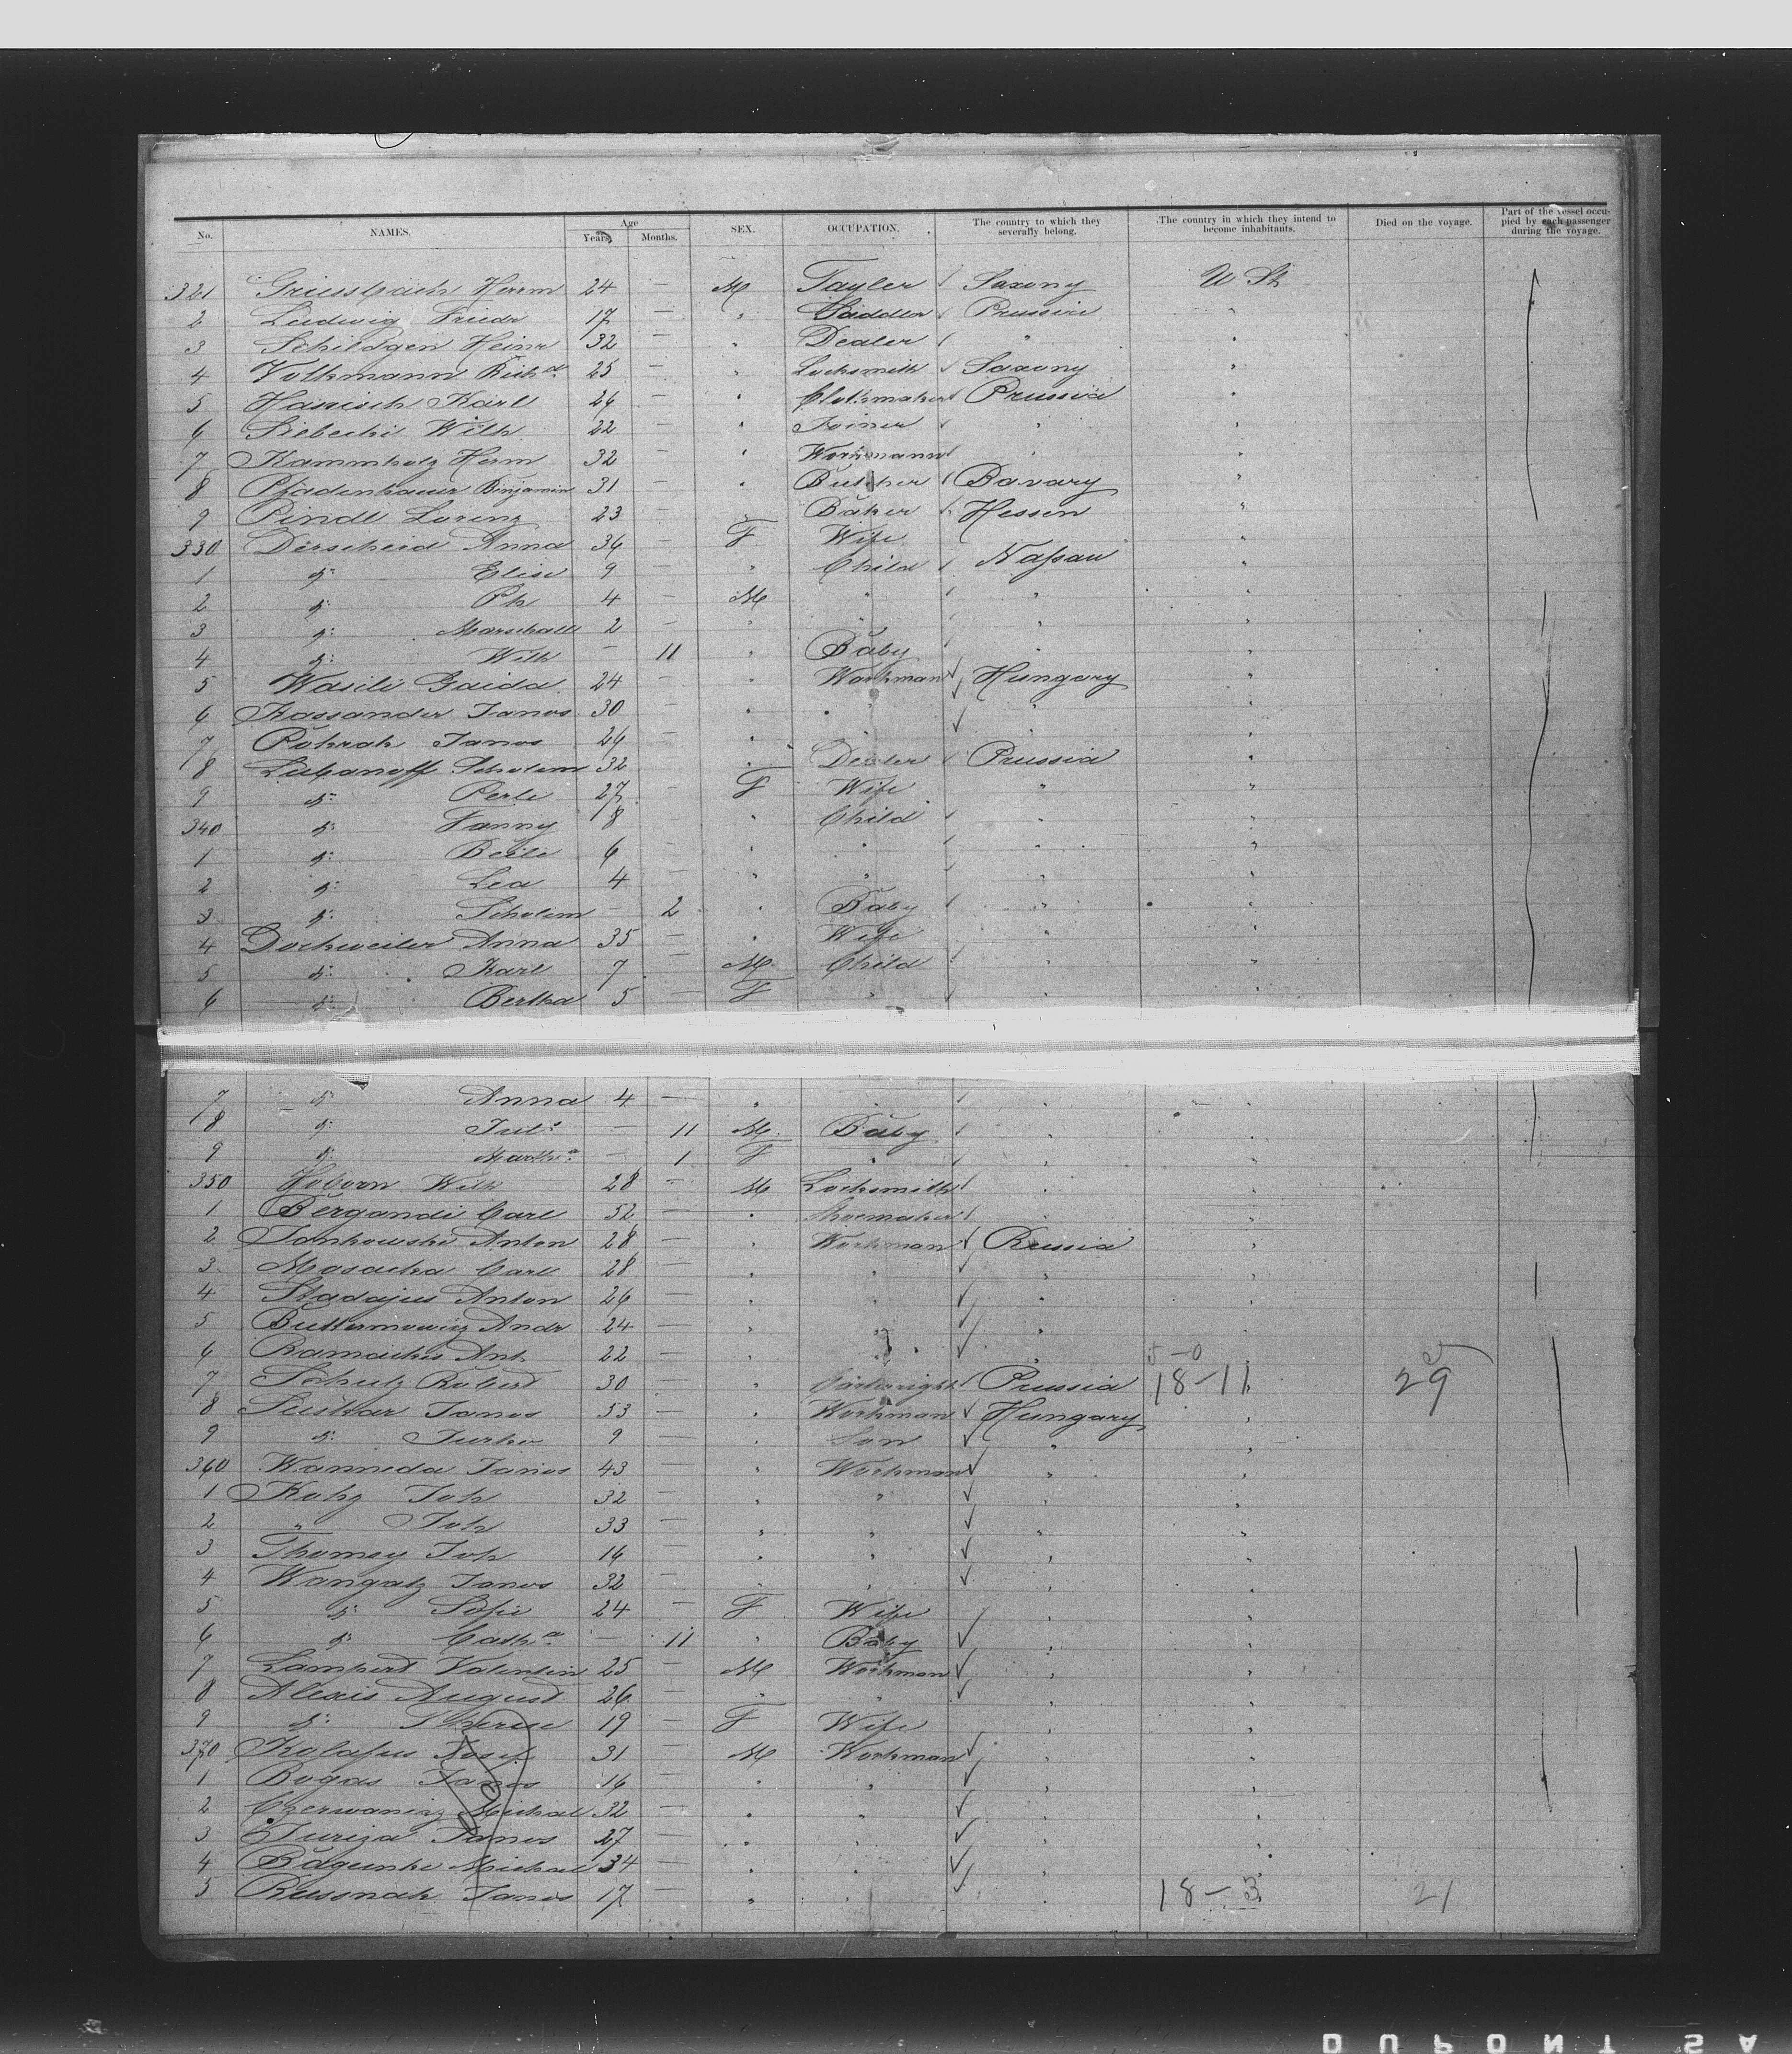 No. NAMES. Age Years. Months. SEX. OCCUPATION. The country to which they severally belong. The country in which they intend to become inhabitants. Died on the voyage. Part of the vessel occupied by each passenger during the voyage.
321 Griessbach Herm 24 — M Tayler ✓ Saxony U St
2 Ludwig Friedr 17 — " Saddler ✓ Prussia "
3 Schildgen Heinr 32 — " Dealer ✓ " "
4 Volkmann Richd 25 — " Locksmith ✓ Saxony "
5 Hanisch Karl 26 — " Clothmaker ✓ Prussia "
6 Siebecki Wilh 22 — " Joiner ✓ " "
7 Kammholz Herm 32 — " Workmann ✓ " "
8 Pfadenhauer Binjamin 31 — " Butcher ✓ Bavary "
9 Pindl Lorenz 23 — " Baker ✓ Hessen "
330 Derscheid Anna 36 — F Wife "
1 do Elise 9 — " Child ✓ Naſsau "
2 do Ph 4 — M " ✓ " "
3 do Marschall 2 — " " ✓ " "
4 do Wilh — 11 " Baby ✓ " "
5 Wasili Gaida 24 — " Workman ✓ Hungary "
6 Kassander Janos 30 — " " ✓ " "
7 Pokrak Janos 26 — " " ✓ " "
8 Lubanoff Scholem 32 — " Dealer ✓ Prussia "
9 do Perle 27 — F Wife " "
340 do Fanny 8 — " Child ✓ " "
1 do Beile 6 — " " ✓ " "
2 do Lea 4 — " " ✓ " "
3 do Scholem — 2 " Baby ✓ " "
4 Dockweiler Anna 35 — " Wife " "
5 do Karl 7 — M Child ✓ " "
6 do Bertha 5 — F " ✓ " "
7 do Anna 4 — " " ✓ " "
8 do Juls — 11 M Baby ✓ " "
9 do Martha — 1 F " ✓ " "
350 Hoborn Wilh 28 — M Locksmith ✓ " "
1 Bergandi Carl 52 — " Shoemaker ✓ " "
2 Jankowski Anton 28 — " Workman ✓ Russia "
3 Masacka Carl 28 — " " ✓ " "
4 Stadajus Anton 26 — " " ✓ " "
5 Buttermowicz Andr 24 — " " ✓ " "
6 Ramackis Ant 22 — " " ✓ " 5-0
7 Schulz Robert 30 — " Cartwright ✓ Prussia 18-11 29
8 Suskar Janos 53 — " Workman ✓ Hungary "
9 do Jurko 9 — " Son ✓ " "
360 Wanneda Janos 43 — " Workman ✓ " "
1 Kohz Joh 32 — " " ✓ " "
2 " Joh 33 — " " ✓ " "
3 Thomsy Joh 16 — " " ✓ " "
4 Wangatz Janos 32 — " " ✓ " "
5 do Sofie 24 — F Wife ✓ " "
6 do Catha — 11 " Baby ✓ " "
7 Lampert Valentin 25 — M Workman ✓ " "
8 Alexis August 26 — " " ✓ " "
9 do Therese 19 — F Wife " "
370 Kolaſus Josef 31 — M Workman ✓ " "
1 Bogas Janos 16 — " " ✓ " "
2 Czerwaninz Michael 32 — " " ✓ " "
3 Juriza Janos 27 — " " ✓ " "
4 Bagunke Michael 34 — " " ✓ " "
5 Russnak Janos 17 — " " ✓ " 18-3 21
DUPONT SA